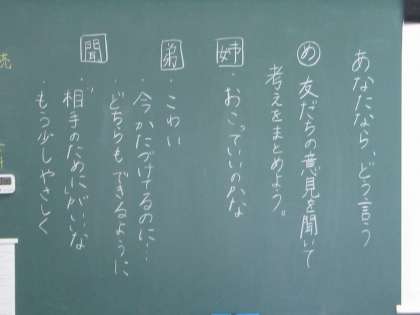 あなたなら、どう言う
め 友だちの意見を聞いて
考えをまとめよう。
姉
・おこっていいのかな
弟
・こわい
・今かたづけてるのに…
・どちらもできるように
聞
・「相手のために」がいいな
・もう少しやさしく